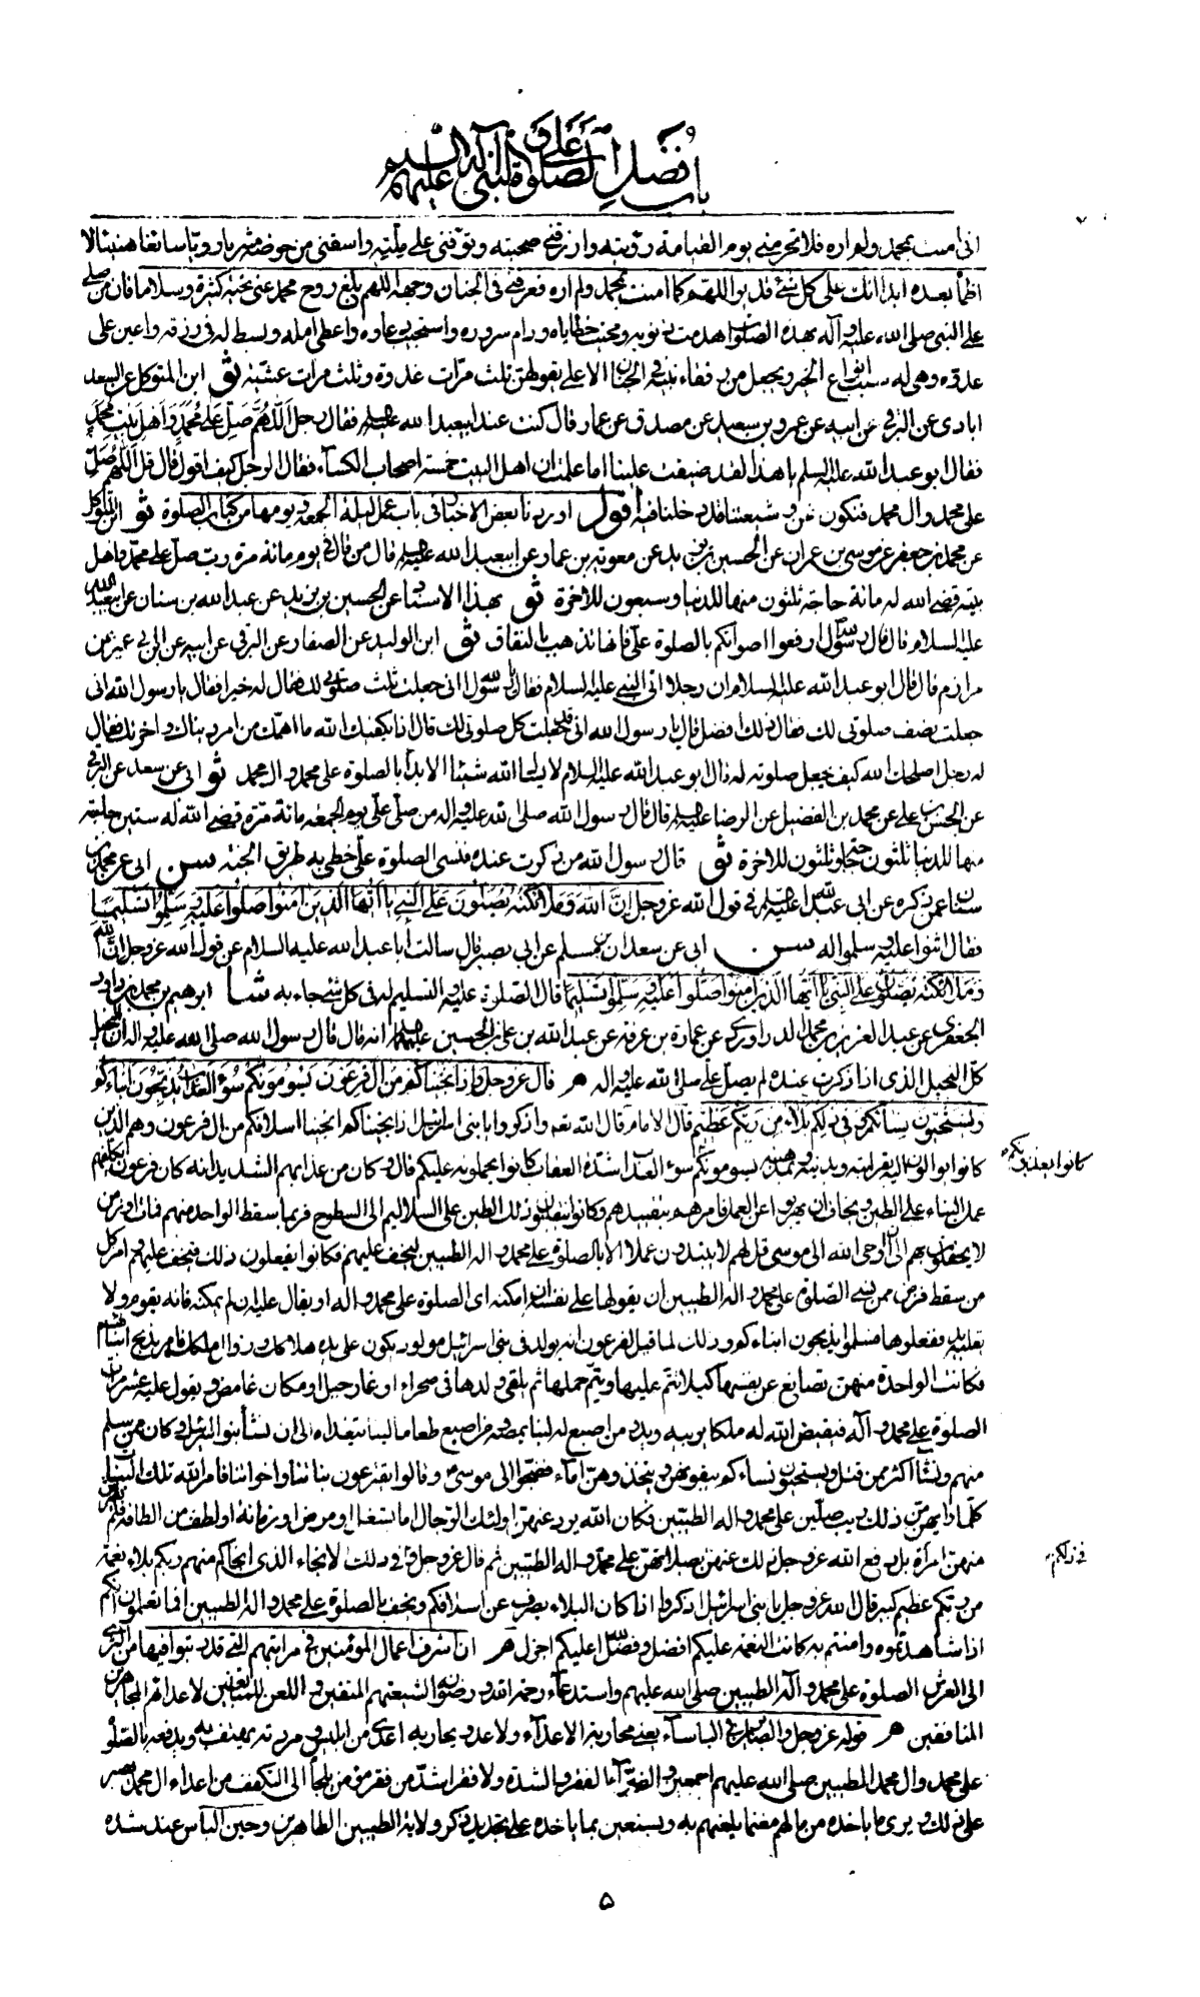 باب فضل الصلوة على النبى وآله عليهم السلام
انى امنت بمحمد ولم اره فلا تحرمنى يوم القيامة رؤيته وارزقنى صحبته وتوفنى على ملته واسقنى من حوضه مشربا رويا سائغا هنيئا لا
اظمأ بعده ابدا انك على كل شئ قدير اللهم كما امنت بمحمد ولم اره فعرفنى فى الجنان وجهه اللهم بلغ روح محمد عنى تحية كثيرة وسلاما فان من صلى
على النبى صلى الله عليه وآله بهذه الصلوات هدمت ذنوبه ومحيت خطاياه ودام سروره واستجيب دعاوه واعطى امله وبسط له فى رزقه واعين على
عدوه وهى له سبب انواع الخير ويجعل من رفقاء نبيه فى الجنان الاعلى يقولهن ثلث مرات غدوة وثلث مرات عشية ثو ابن المتوكل عن السعد
ابادى عن البرقى عن ابيه عن عمرو بن سعيد عن مصدق عن عمار قال كنت عند ابيعبد الله عليه السلم فقال رجل اللهم صل على محمد واهل بيت محمد
فقال ابو عبد الله عليه السلم يا هذا لقد ضيقت علينا اما علمت ان اهل البيت خمسة اصحاب الكساء فقال الرجل كيف اقول قال قل اللهم صل
على محمد وال محمد فنكون نحن وشيعتنا قد دخلنا فيه اقول اوردنا بعض الاخبار فى باب عمل ليلة الجمعة ويومها من كتاب الصلوة ثو ابن المتوكل
عن محمد بن جعفر عن موسى بن عمران عن الحسين بن يزيد عن معوية بن عمار عن ابيعبد الله عليه السلم قال من قال فى يوم مائة مرة رب صل على محمد واهل
بيته قضى الله له مائة حاجة ثلثون منها للدنيا وسبعون للاخرة ثو بهذا الاسناد عن الحسين بن يزيد عن عبد الله بن سنان عن ابيعبد الله
عليه السلام قال قال رسول الله ارفعوا اصواتكم بالصلوة على فانها تذهب بالنفاق ثو ابن الوليد عن الصفار عن البرقى عن ابيه عن ابن ابى عمير عن
مرازم قال قال ابو عبد الله عليه السلام ان رجلا اتى النبى عليه السلام فقال يا رسول الله انى جعلت ثلث صلوتى لك فقال له خيرا فقال يا رسول الله انى
جعلت نصف صلوتى لك فقال ذلك افضل قال يا رسول الله انى قد جعلت كل صلوتى لك قال اذا يكفيك الله ما اهمك من امر دنياك واخرتك فقال
له رجل اصلحك الله كيف يجعل صلوته له قال ابو عبد الله عليه السلام لا يسأل الله شيئا الا بدأ بالصلوة على محمد وال محمد ثو ابى عن سعد عن البرقى
عن الحسن بن على عن محمد بن الفضيل عن الرضا عليه السلم قال قال رسول الله صلى الله عليه واله من صلى على يوم الجمعة مائة مرة قضى الله له ستين حاجة
منها للدنيا ثلثون حاجة وثلثون للاخرة ثو قال رسول الله من ذكرت عنده فنسى الصلوة على خطى به طريق الجنة سن ابى عن محمد بن
سنان عمن ذكره عن ابى عبد الله عليه السلم فى قول الله عز وجل ان الله وملائكته يصلون على النبى يا ايها الذين امنوا صلوا عليه وسلموا تسليما
فقال اثنوا عليه وسلموا له سن ابى عن سعدان بن مسلم عن ابى بصير قال سالت ابا عبد الله عليه السلام عن قول الله عز وجل ان الله
وملائكته يصلون على النبى يا ايها الذين امنوا صلوا عليه وسلموا تسليما قال الصلوة عليه والتسليم له فى كل شئ جاء به شا ابرهيم بن محمد بن داود
الجعفرى عن عبد العزيز بن محمد الدراوردى عن عمارة بن غزية عن عبد الله بن على بن الحسين عليهم السلم انه قال قال رسول الله صلى الله عليه واله ان البخيل
كل البخيل الذى اذا ذكرت عنده لم يصل على صلى الله عليه واله م قال عز وجل واذ انجيناكم من ال فرعون يسومونكم سوء العذاب يذبحون ابناءكم
ويستحيون نساءكم وفى ذلكم بلاء من ربكم عظيم قال الامام قال الله تعه واذكروا يا بنى اسرائيل اذ انجيناكم انجينا اسلافكم من ال فرعون وهم الذين
كانوا يوالون اليه بقرابته وبدينه ومذهبه يسومونكم سوء العذاب اشد العقاب كانوا يحملونه عليكم قال وكان من عذابهم الشديد انه كان فرعون يكلفهم
كانوا يعذبونكم
عمل البناء على الطين ويخاف ان يهربوا عن العمل فامرهم بتقييدهم وكانوا ينقلون ذلك الطين على السلاليم الى السطوح فربما سقط الواحد منهم فمات او زمن
لا يحفلون بهم الى ان اوحى الله الى موسى قل لهم لا يبتدؤن عملا الا بالصلوة على محمد واله الطيبين ليخف عليهم فكانوا يفعلون ذلك فيخف عليهم وامر كل
من سقط فزمن ممن نسى الصلوة على محمد واله الطيبين ان يقولها على نفسه ان امكنه اى الصلوة على محمد واله او يقال عليه ان لم يمكنه فانه يقوم ولا
يقلبه يد ففعلوها فسلموا يذبحون ابناءكم وذلك لما قيل لفرعون انه يولد فى بنى اسرائيل مولود يكون على يده هلاكك وزوال ملكك فامر بذبح ابنائهم
فكانت الواحدة منهن تصانع عن نفسها كيلا تنم عليها ويتم حملها ثم تلقى ولدها فى صحراء او غار جبل او مكان غامض ويقول عليه عشر مرات
الصلوة على محمد وآله فيقيض الله له ملكا يربيه ويدر من اصبع له لبنا يمصه ومن اصبع طعاما لينا يتغذاه الى ان نشأ بنو اسرائيل وكان من سلم
منهم ونشأ اكثر ممن قتل ويستحيون نساءكم يبقونهن ويتخذوهن امآء فضجوا الى موسى وقالوا يفترعون بناتنا واخواتنا فامر الله تلك البنات
كلما رابهن من ذلك ريب صلين على محمد واله الطيبين فكان الله يرد عنهن اولئك الرجال اما بشغل او مرض او زمانة او لطف من الطافه فلم يفترش
منهن امرأة بل دفع الله عز وجل ذلك عنهن بصلاتهن على محمد واله الطيبين ثم قال عز وجل وفى ذلكم الانجاء الذى انجاكم منهم ربكم بلاء نعمة
فى ذلكم
من ربكم عظيم كبير قال الله عز وجل يا بنى اسرائيل اذكروا اذا كان البلاء يصرف عن اسلافكم ويخف بالصلوة على محمد واله الطيبين افما تعلمون انكم
اذا شاهدتموه وامنتم به كانت النعمة عليكم افضل وفضل الله عليكم اجزل م ان اشرف اعمال المؤمنين فى مراتبهم التى قد رتبوا فيها من الثرى
الى العرش الصلوة على محمد وآله الطيبين صلى الله عليهم واستدعاء رحمة الله ورضوانه لشيعتهم المتقين واللعن للمتابعين لاعدائهم المجاهرين
المنافقين م قوله عز وجل والصابرين فى البأساء يعنى محاربة الاعدآء ولا عدو يحاربه اعدى من ابليس ومردته يهتف به ويدفعه بالصلوة
على محمد وال محمد الطيبين صلى الله عليهم اجمعين والضرآء الفقر والشدة ولا فقر اشد من فقر مؤمن يلجأ الى التكفف من اعداء ال محمد يصبر
على ذلك ويرى ما ياخذه من مالهم مغنما يلعنهم به ويستعين بما ياخذه على تجديد ذكر ولاية الطيبين الطاهرين وحين البأس عند شدة
۵